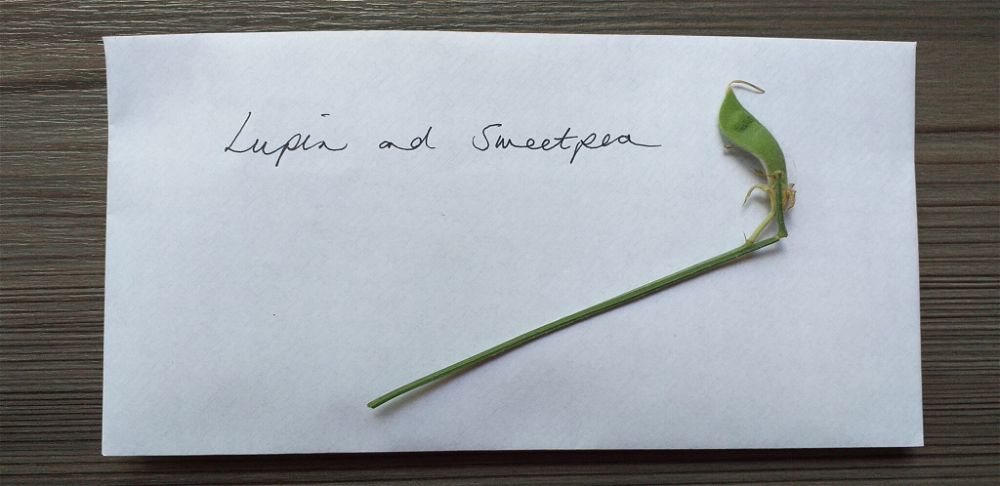 Lupin and Sweetpea